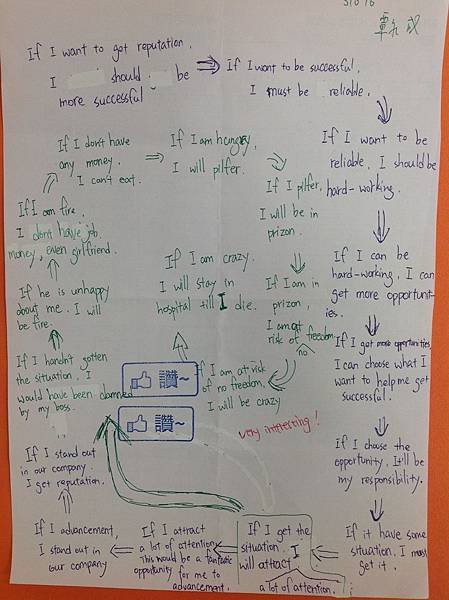 51016
覃永成
If I want to get reputation,
I should be
more successful
If I want to be successful,
I must be reliable.
If I want to be
reliable, I should be
hard-working.
If I can be
hard-working, I can
get more opportunit-
ies.
If I got more opportunities,
I can choose what I
want to help me get
successful.
If I choose the
opportunity. It'll be
my responsibility.
If it have some
situation. I must
get it.
If I get the
situation. I
will attract
a lot of attention.
If I attract
a lot of attention,
This would be a fantastic
opportunity
for me to
advancement.
If I advancement,
I stand out in
our company
If I stand out
in our company.
I get reputation.
If I handn't gotten
the situation, I
would have been
by my boss.
If he is unhappy
about me. I will
be fire.
If I am fire.
I don't have job.
money, even girlfriend.
If I don't have
any money.
I can't eat.
If I am hungry,
I will pilfer.
If I pilfer,
I will be in
prizon.
If I am in
prizon,
I am at
risk of freedom.
no
If I am at risk
of no freedom,
I will be crazy
If I am crazy.
I will stay in
hospital till I die.
讚~
讚~
very interesting!